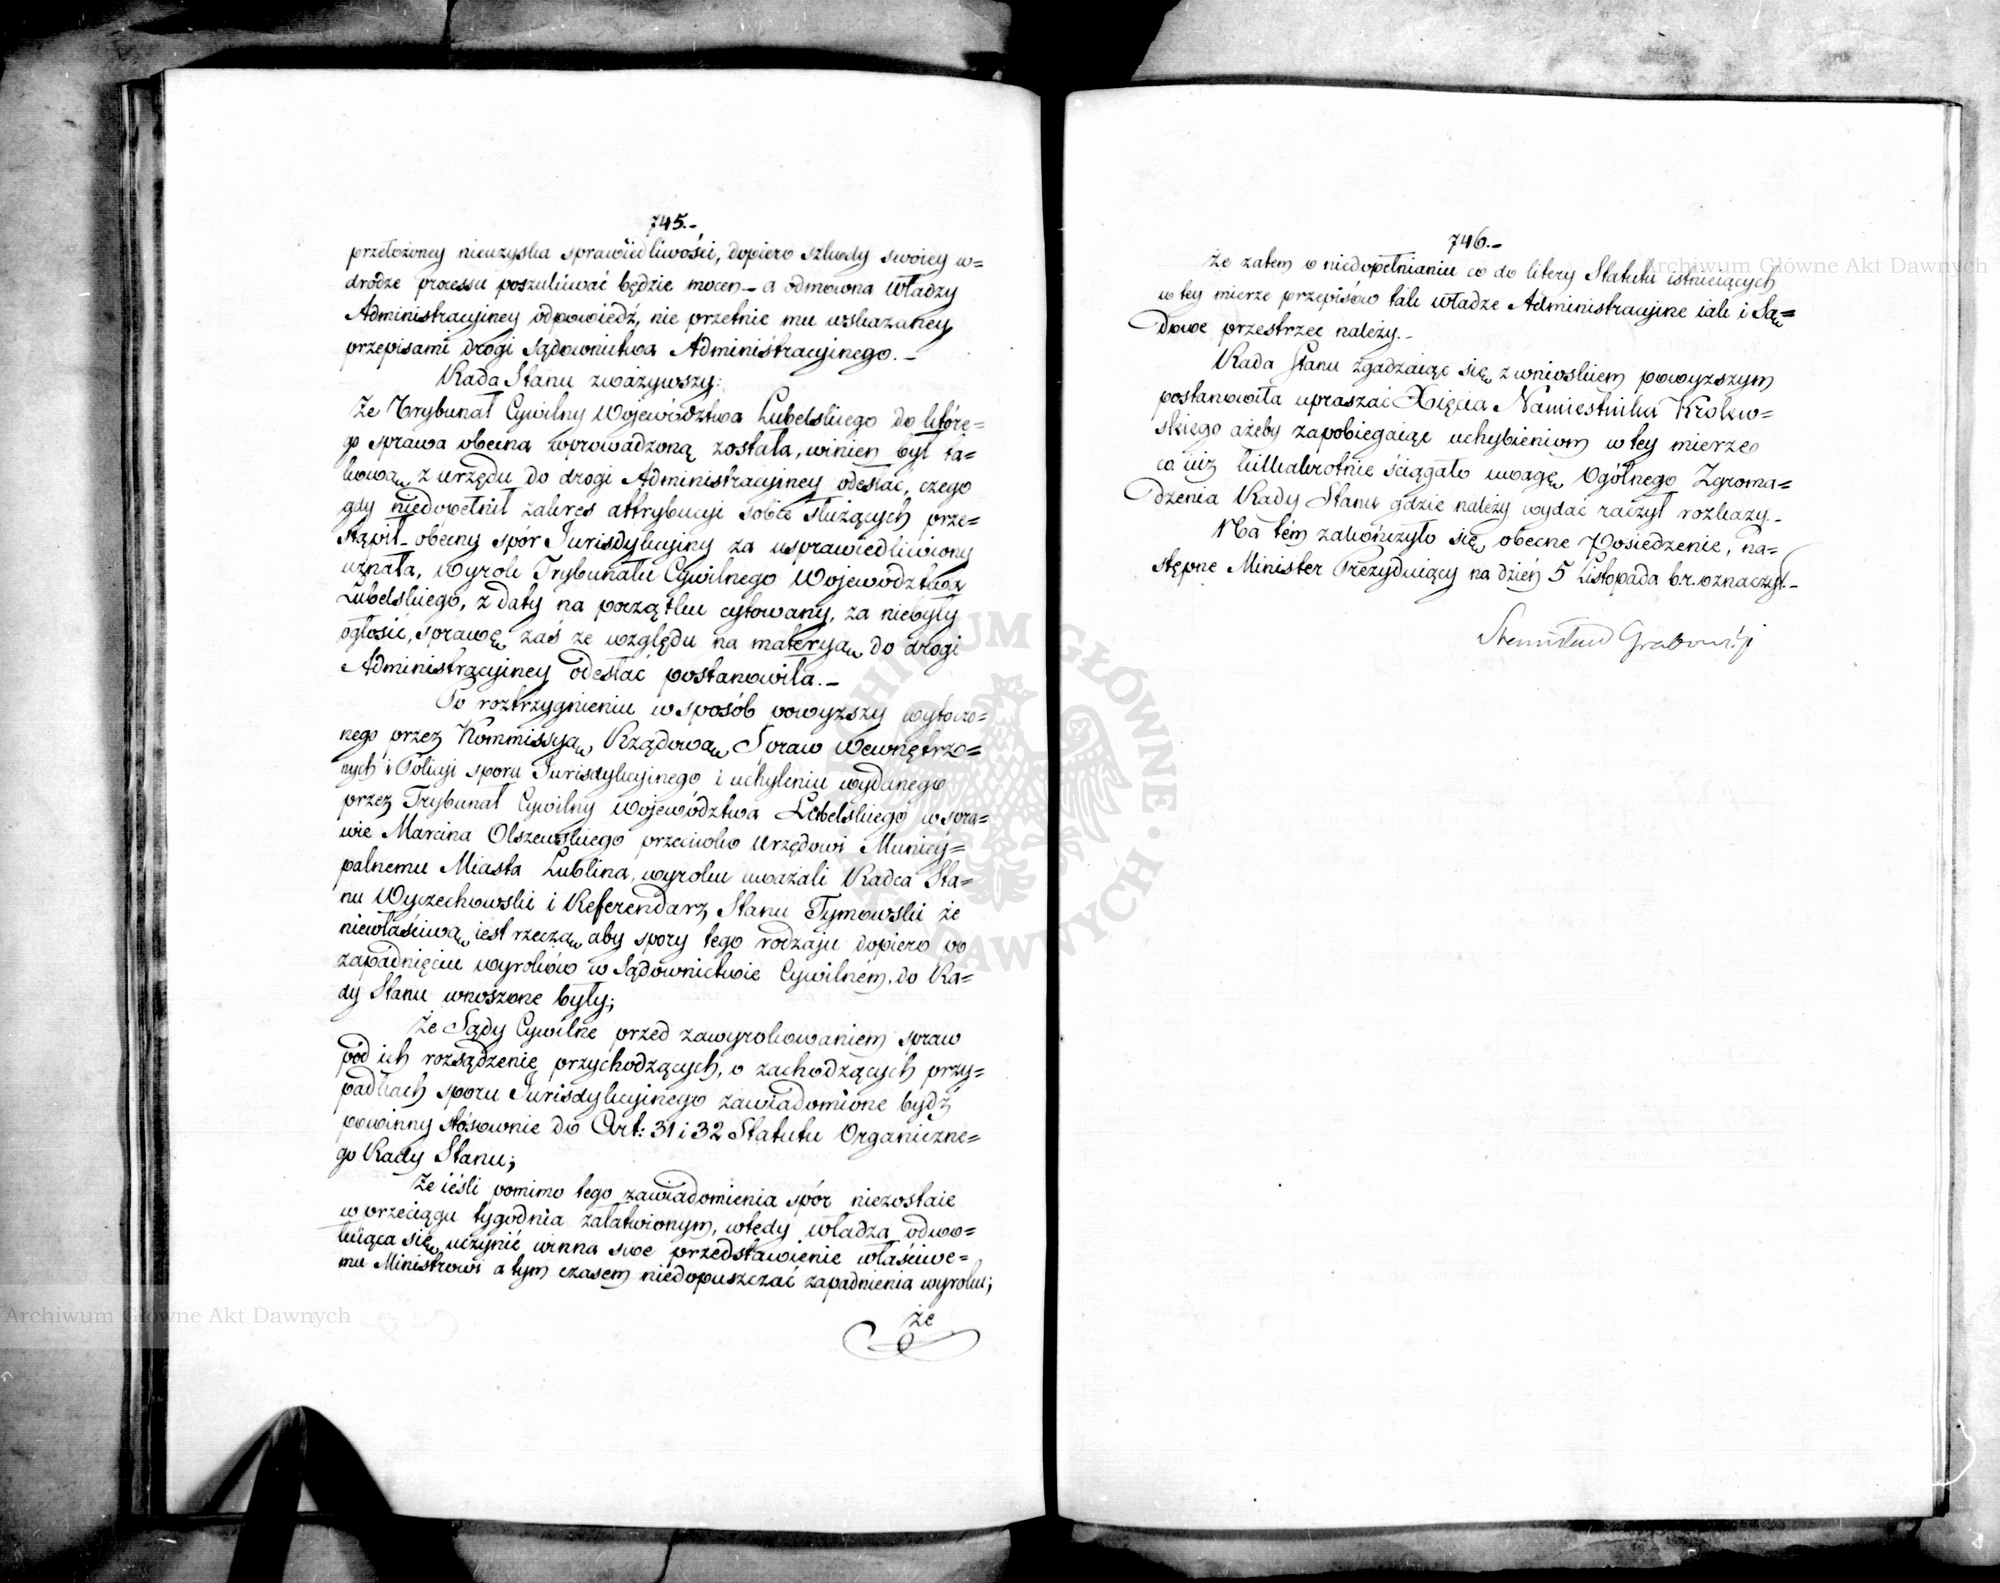 745.-
przełożoney nieuzyska sprawiedliwości, dopiero szkody swoiey w=
drodze processu poszukiwać będzie mocen_ a odmowna Władzy
Administracyiney odpowiedź, nie przetnie mu wskazaney
przepisami drogi Sądownictwa Administracyinego._
Rada Stanu zważywszy:
Że Trybunał Cywilny Województwa Lubelskiego do które=
go sprawa obecna wprowadzoną została, winien był ta=
kową z urzędu do drogi Administracyiney odesłać, czego
gdy niedopełnił zakres attrybucyi sobie służących prze=
stąpił_ obecny spór Jurisdykcyiny za usprawiedliwiony
uznała, wyrok Trybunału Cywilnego Województwa
Lubelskiego, z daty na początku cytowany, za niebyły
ogłosić, sprawę zaś ze względu na materyą do drogi
Administracyiney odesłać postanowiła._
Po roztrzygnieniu w sposób powyższy wytoczo=
nego przez Kommissyą Rządową Spraw Wewnętrz=
nych i Policyi sporu Jurisdykcyinego i uchyleniu wydanego
przez Trybunał Cywilny Województwa Lubelskiego w spra=
wie Marcina Olszewskiego przeciwko Urzędowi Municy=
palnemu Miasta Lublina, wyroku uważali Radca Sta=
nu Wyczechowski i Referendarz Stanu Tymowski że
niewłaściwą iest rzeczą aby spory tego rodzaju dopiero po
zapadnięciu wyroków w Sądownictwie Cywilném, do Ra=
dy Stanu wnoszone były;
Że Sądy Cywilne przed zawyrokowaniem spraw
pod ich rozsądzenie przychodzących, o zachodzących przy=
padkach sporu Jurisdykcyinego zawiadomione bydź
powinny stósownie do Art: 31 i 32 Statutu Organiczne=
go Rady Stanu;
Że ieśli pomimo tego zawiadomienia spór niezostaie
w przeciągu tygodnia załatwionym, wtedy władza odwo=
łuiąca się uczynić winna swe przedstawienie właściwe=
mu Ministrowi a tym czasem niedopuszczać zapadnienia wyroku;
że
746.-
Że zatem o niedopełnianiu co do litery Statutu istnieiących
w tey mierze przepisów tak władze Administracyine iak i Są=
dowe przestrzec należy._
Rada Stanu zgadzaiąc się z wnioskiem powyższym
postanowiła upraszać Xięcia Namiestnika Królew=
skiego ażeby zapobiegaiąc uchybieniom w tey mierze
co iuż kilkakrotnie ściągało uwagę Ogólnego Zgroma=
dzenia Rady Stanu gdzie należy wydać raczył rozkazy._
Na tém zakończyło się obecne Posiedzenie, na=
stępne Minister Prezyduiący na dzień 5 Listopada b.r. oznaczył_
Stanisław Grabowski
Archiwum Główne Akt Dawnych
Archiwum Główne Akt Dawnych
ARCHIWUM GŁÓWNE AKT DAWNYCH